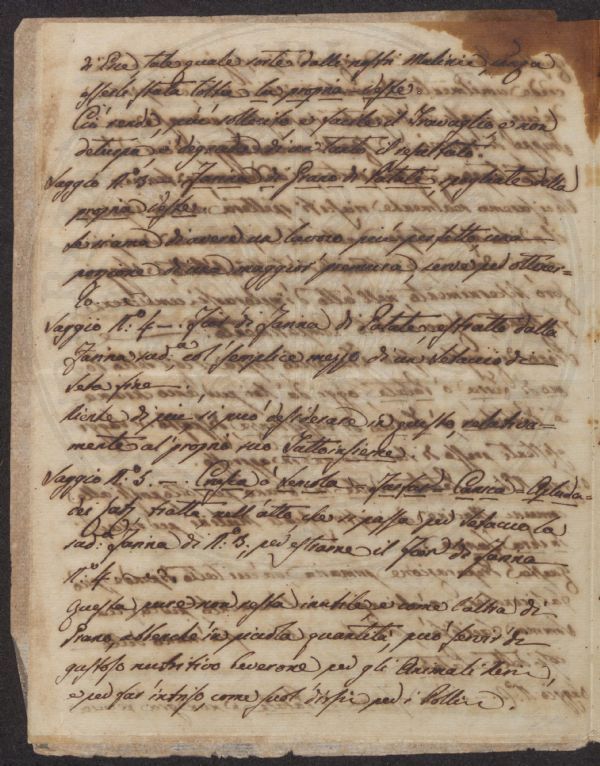 di Esse tale quale sorte dalli nostri Mulini, senza
esserle stata tolta la propria
Ciò rende, più sollecito e facile il Travaglio e non
deturpa, e degrada di un tanto il resultato.
Saggio N.º 3 — Farina di Grano di Patate, spogliate della
propria
Se si ama di avere un lavoro più perfetto, una
porzione di una maggior premura, serve per ottener-
lo.
Saggio N.º 4 — . Fior di Farina di Patate, estratto dalla
Farina sud.ª col semplice mezzo di un Setaccio di
Seta fine.
Niente di più si può desiderare in questo, relativa-
mente al proprio suo Tuttoinsieme.
Saggio N.º 5. — . Crusca o Semola
tratta nell'atto che si passa per Setaccio la
sud.ª Farina di N.º 3, per estrarne il Fior di Farina
N.º 4
Questa pure non resta inutile e come l'altra di
Grano, abbenchè in piccola quantità, può servir di
gustoso nutritivo beverone per gli Animali
e per far intriso, come suol dirsi per i Polli.